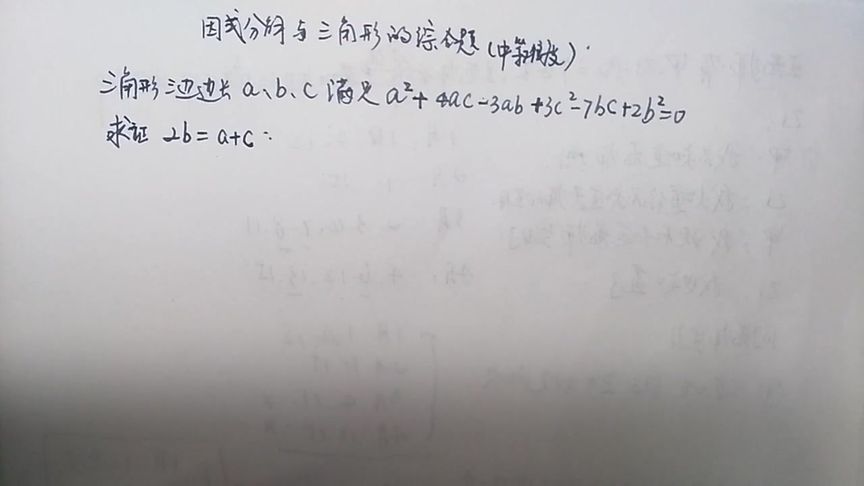 因式分解与三角形的综合题(中等难度)
三角形三边边长 a、b、c 满足 a²+4ac-3ab+3c²-7bc+2b²=0
求证 2b=a+c